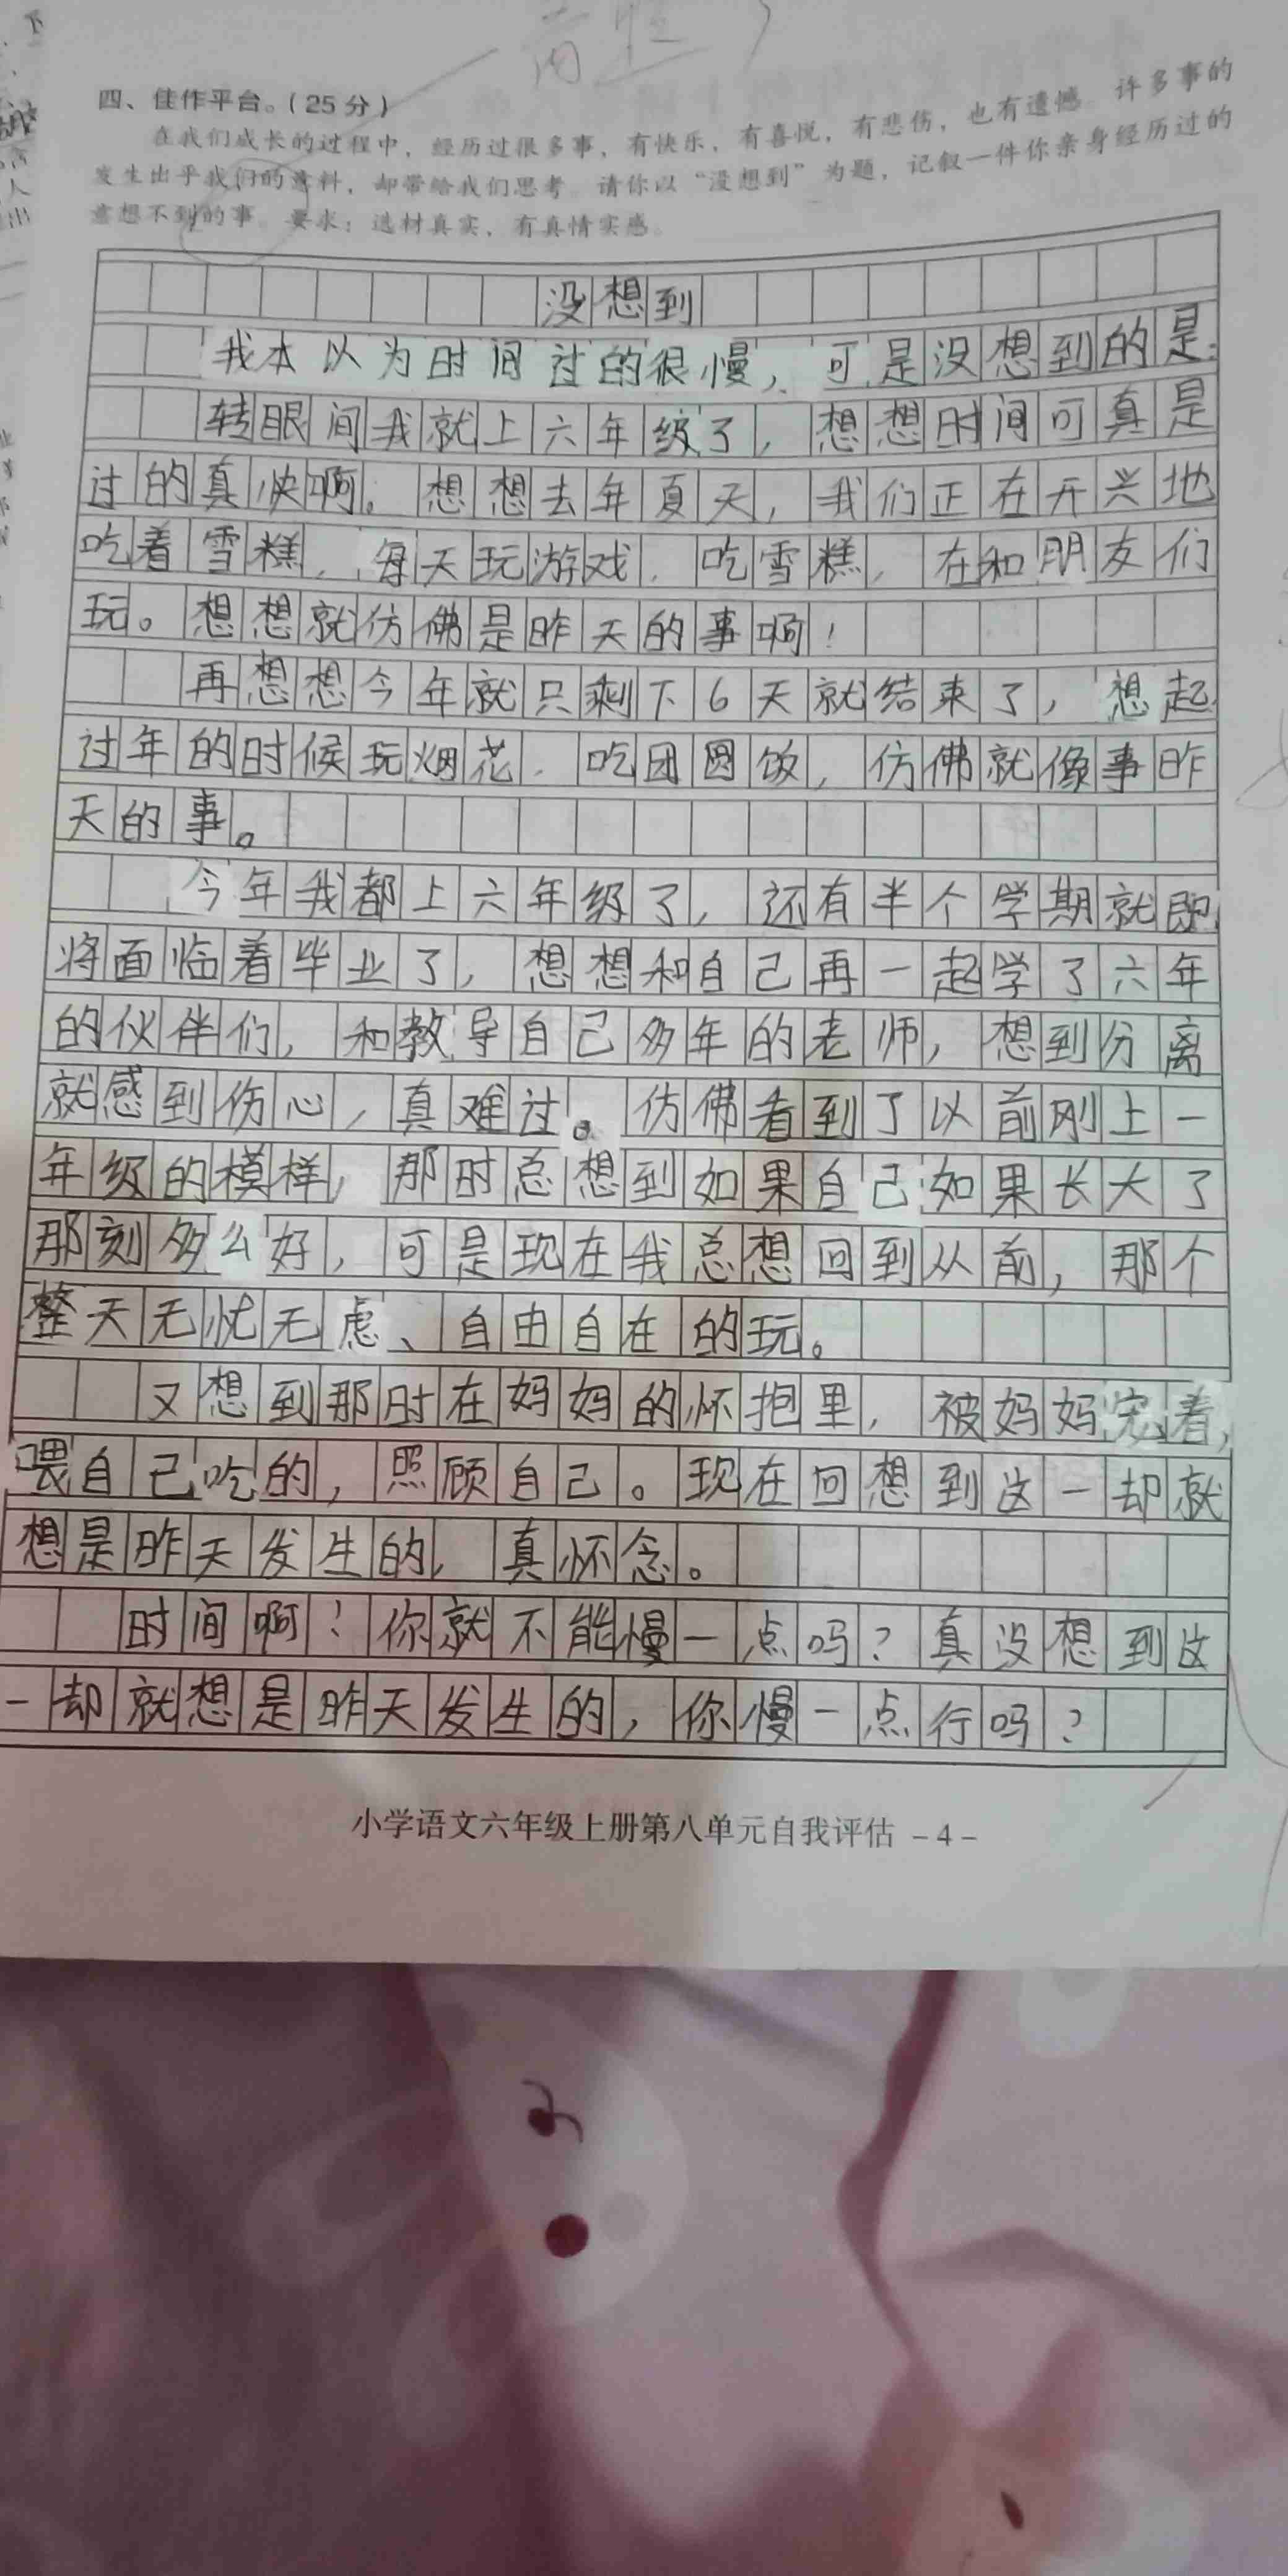 四、佳作平台。(25分)
在我们成长的过程中，经历过很多事，有快乐，有喜悦，有悲伤，也有遗憾。许多事的
发生出乎我们的意料，却带给我们思考。请你以“没想到”为题，记叙一件你亲身经历过的
意想不到的事。要求：选材真实，有真情实感。
没想到
我本以为时间过的很慢，可是没想到的是：
转眼间我就上六年级了，想想时间可真是
过的真快啊。想想去年夏天，我们正在开兴地
吃着雪糕，每天玩游戏，吃雪糕，在和朋友们
玩。想想就仿佛是昨天的事啊！
再想想今年就只剩下6天就结束了，想起
过年的时候玩烟花，吃团圆饭，仿佛就像事昨
天的事。
今年我都上六年级了，还有半个学期就即
将面临着毕业了，想想和自己再一起学了六年
的伙伴们，和教导自己多年的老师，想到分离
就感到伤心，真难过。仿佛看到了以前刚上一
年级的模样，那时总想到如果自己如果长大了
那刻多么好，可是现在我总想回到从前，那个
整天无忧无虑、自由自在的玩。
又想到那时在妈妈的怀抱里，被妈妈宠着，
喂自己吃的，照顾自己。现在回想到这一却就
想是昨天发生的，真怀念。
时间啊！你就不能慢一点吗？真没想到这
一却就想是昨天发生的，你慢一点行吗？
小学语文六年级上册第八单元自我评估 -4-